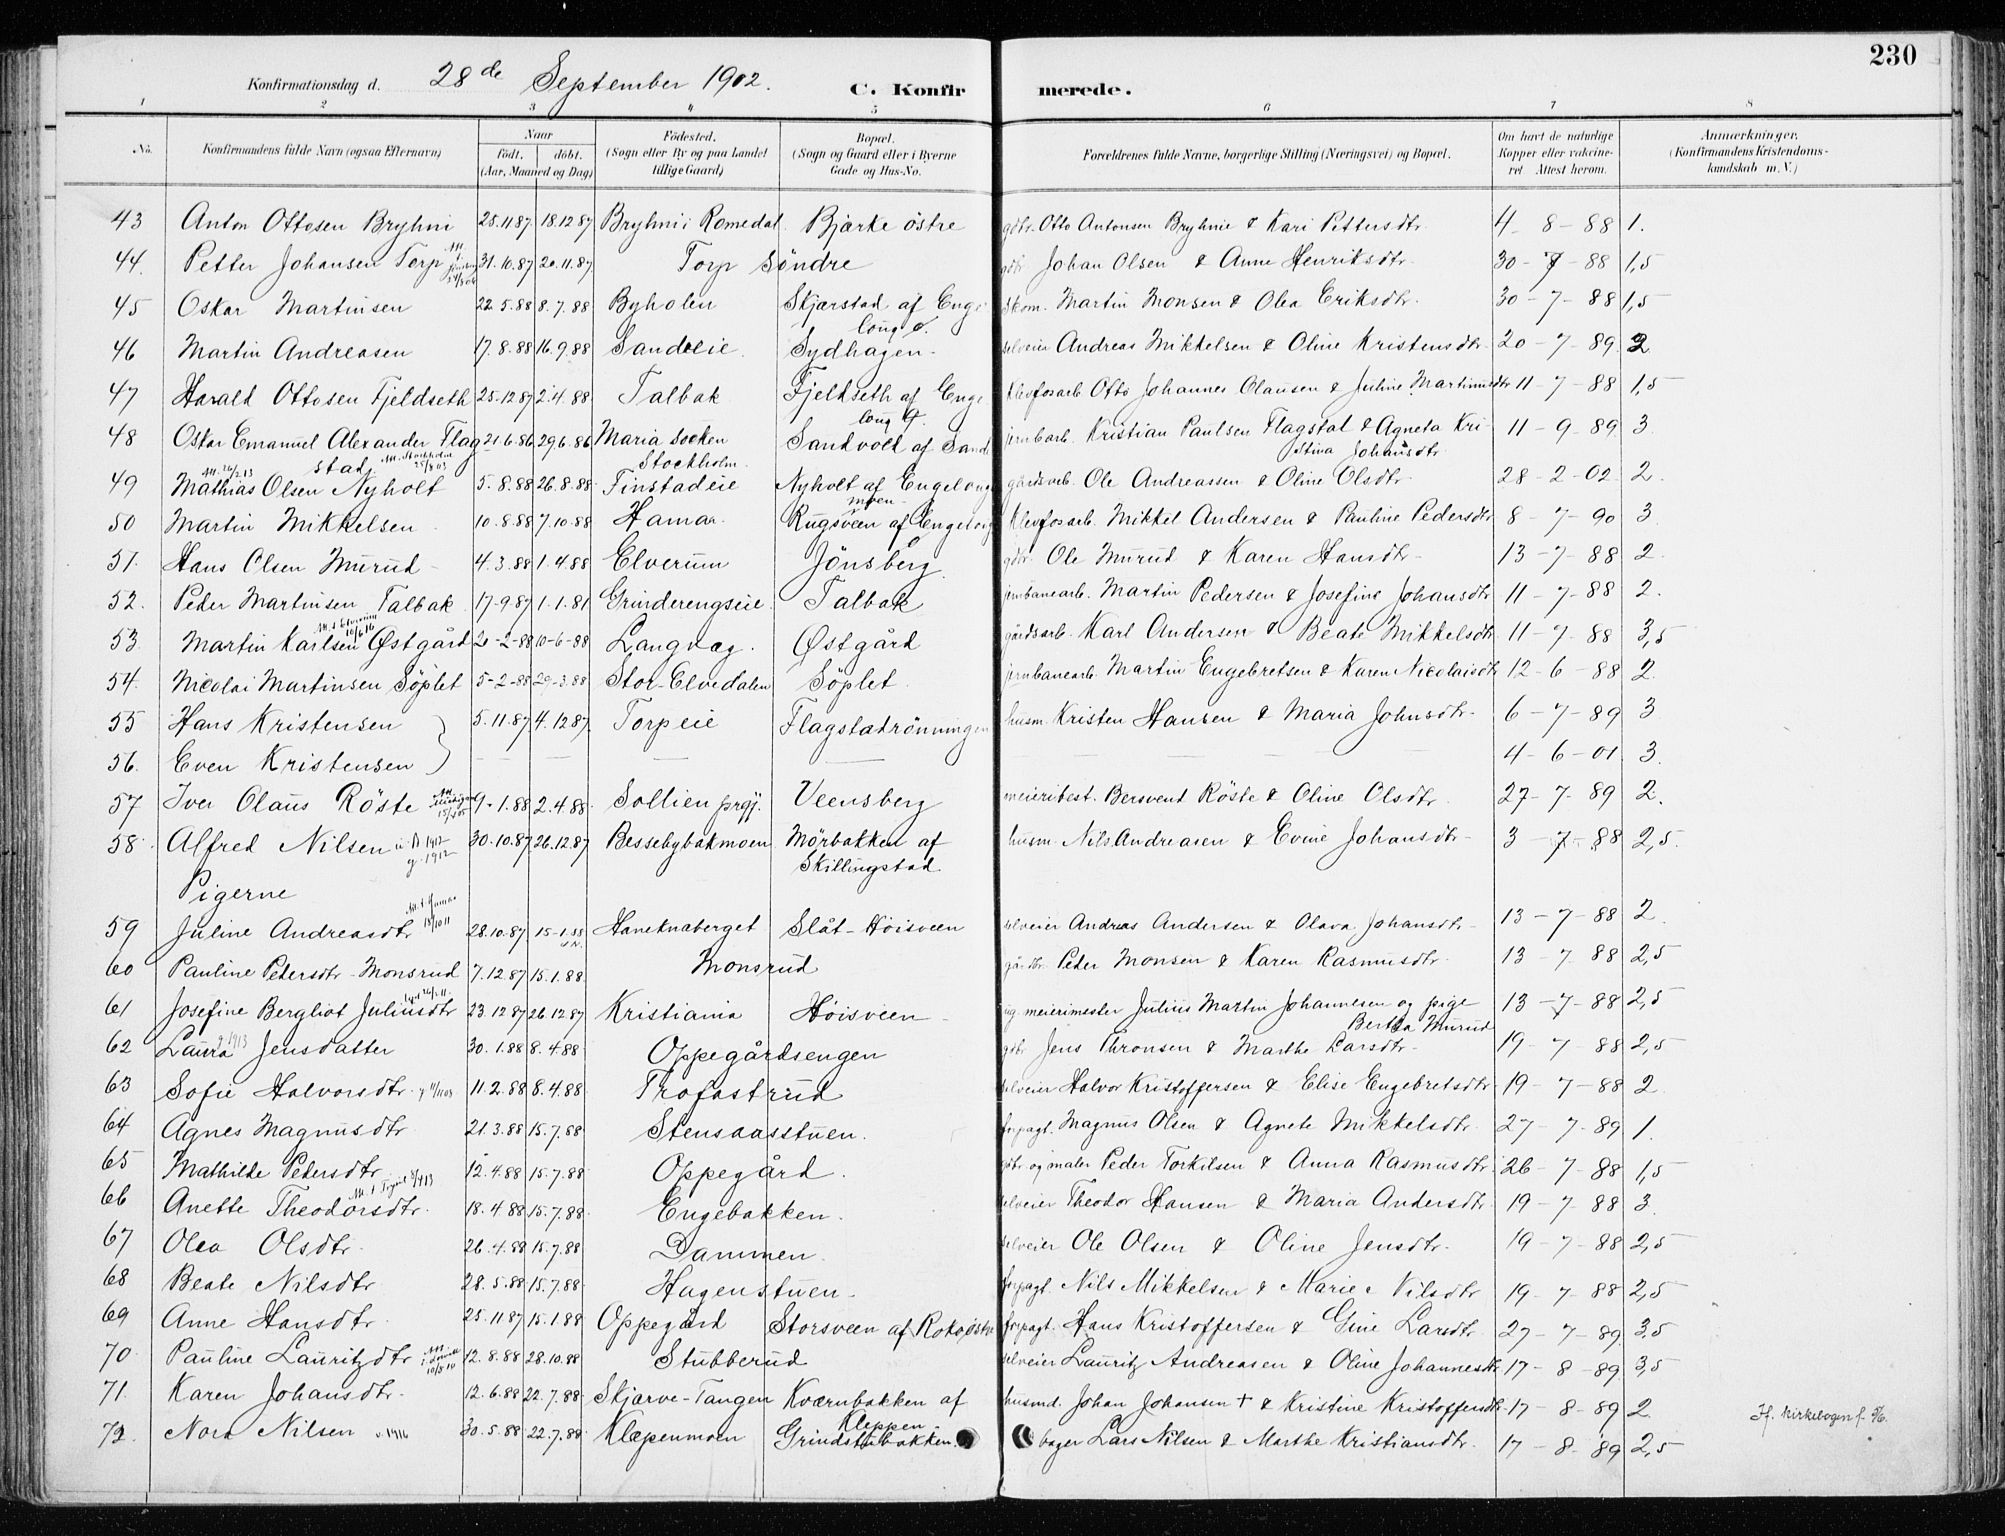 230
Konfirmationsdag d. 28de September 1902. C. Konfir merede.
1 2 3 4 5 6 7 8
No. Konfirmandens fulde Navn (ogsaa Efternavn) Naar født, døbt. (Aar, Maaned og Dag) Fødested. (Sogn eller By og paa Landet tillige Gaard) Bopæl. (Sogn og Gaard eller i Byerne Gade og Hus-No. Forældrenes fulde Navne, borgerlige Stilling (Næringsvei) og Bopæl. Om havt de naturlige Kopper eller vakcineret. Attest herom. Anmærkninger. (Konfirmandens Kristendomskundskab m. V.)
43 Anton Ottosen Bryhni 25.11.87 18.12.87 Bryhni i Romedal Bjørke östre gdbr. Otto Antonsen Bryhnie & Kari Pettersdtr. 4 - 8 - 88 1.
44. Petter Johansen Torp 31.10.87 20.11.87 Torp Söndre gdbr Johan Olsen & Anne Henriksdtr. 30 - 7 - 88 1,5
45 Oskar Martinsen 22.5.88 8.7.88 Byholen Skjærstad af Enge loug ö. skom. Martin Monsen & Olea Eriksdtr. 30 - 7 - 88 1,5
46 Martin Andreasen 17.8.88 16.9.88 Sandeeie Sydhagen selveier Andreas Mikkelsen & Oline Kristensdtr. 20 - 7 - 89 2
47 Harald Ottosen Fjeldseth 25.12.87 2.4.88 Talbak Fjeldseth af Enge loug Klevfosarb. Otto Johannes Olausen & Juline Martinusdtr 11 - 7 - 88 1,5
48 Oskar Emanuel Alexander Flagstad 21.6.86 29.6.86 Maria socken Stockholm Sandvold af Sande jernbarb. Kristian Paulsen Flagstad & Agneta Kristina Johansdtr. 11 - 9 - 89 3
49 Mathias Olsen Nyholt 5.8.88 26.8.88 Finstadeie Nyholt af Engeloug gårdsarb. Ole Andreassen & Oline Olsdtr. 28 - 2 - 02 2.
50 Martin Mikkelsen 10.8.88 7.10.88 Hamar Rugsveen af Engeloug Klevfosarb. Mikkel Andersen & Pauline Pedersdtr 8 - 7 - 90 3
51. Hans Olsen Murud 4.3.88 1.4.88 Elverum Jönsberg gdbr. Ole Murud & Karen Hansdtr. 13 - 7 - 88 2
52. Peder Martinsen Talbak 17-9.87 1.1.81 Grinderengseie Talbak jernbanearb. Martin Pedersen & Josefine Johansdtr 11 - 7 - 88 2.
53. Martin Karlsen Østgård 20-2-88 10-6-88 Langvæg. Østgård gårdsarb. Karl Andersen & Beate Mikkelsdtr. 11 - 7 - 88 3,5
54. Nicolai Martinsen Söplet 5-2-88 29-3.88 Stor-Elvedalen Söplet jernbanearb. Martin Engebretsen & Karen Nicolaisdtr 12 - 6 - 88 2.
55 Hans Kristensen 5.11.87 4.12.87 Torpeie Flagstadrönningen husm. Kristen Hansen & Maria Johnsdtr. 6 - 7 - 89 3
56. Even Kristensen 4 - 6 - 01 3.
57 Iver Olaus Röste 9-1.88 2.4.88 Sollien prgj. Veensberg meieribest. Bersvend Röste & Oline Olsdtr. 27 - 7 - 89 2.
58. Alfred Nilsen 30.10.87 26.12.87 Bessebybakmoen Mörbakken af Skillingstad husm. Nils Andreasen & Evine Johansdtr. 3 - 7 - 88 2,5.
Pigerne
59 Juline Andreasdtr 28.10.87 15-1.88 Haneknaberget Slåt-Höisveen selveier Andreas Andersen & Olava Johansdtr. 13 - 7 - 88 2
60 Pauline Pedersdtr Monsrud 7.12.87 15.1.88 Monsrud gårdbr. Peder Monsen & Karen Rasmusdtr. 13 - 7 88 2,5
61 Josefine Bergliot Juliusdtr 23.12.87 26.12.87 Kristiania Höisveen ug. meierimester Julius Martin Johannesen og pige Bertha Murud 13 - 7 - 88 2,5
62 Laura Jensdatter 30.1.88 8.4.88 Oppegårdsengen gdbr Jens Thronsen & Marthe Larsdtr. 19 - 7 88 2,5
63 Sofie Halvorsdtr. 11.2.88 8.4.88 Trofastrud selveier Halvor Kristoffersen & Elise Engebretsdtr. 19 - 7 - 88 2
64 Agnes Magnusdtr 21.3.88 15.7.88 Stensaasstuen. forpagt. Magnus Olsen & Agnete Mikkelsdtr. 27 - 7 - 89 1.
65 Mathilde Petersdtr. 12.4.88 15.7.88 Oppegård. gdbr og maler Peder Torkilsen & Anna Rasmusdtr. 26 - 7 - 88 1,5
66 Anette Theodorsdtr. 18.4.88 15.7.88 Engebakken. selveier Theodor Hansen & Maria Andersdtr. 19 - 7 - 88 3.
67 Olea Olsdtr. 26.4.88 15.7.88 Dammen. selveier Ole Olsen & Oline Jensdtr. 19 - 7 - 88 2,5
68 Beate Nilsdtr 28.5.88 15.7.88 Hagenstuen. forpagt. Nils Mikkelsen & Marie Nilsdtr 19 - 7 - 88 2,5
69 Anne Hansdtr. 25.11.87 15.1.88 Oppegård Storsveen af Rokoöstre forpagt. Hans Kristoffersen & Gine Larsdtr 27 - 7 - 89. 3,5
70 Pauline Lauritzdtr 12.8.88 28.10.88 Stubberud selveier Lauritz Andreasen & Oline Johannesdtr. 17 - 8 - 89 3,5
71. Karen Johansdtr. 12.6.88 22.7.88 Skjærve-Tangen Kværnbakken af Kleppen husmd. Johan Johansen + & Kristine Kristoffersdtr. 17 - 8 - 89 2
72. Nora Nilsen 30.5.88 22.7.88 Klæpenmoen Grindstubakken. bager Lars Nilsen & Marthe Kristiansdtr. 17 - 8 - 89 2,5 Jf. kirkebogen f. 96.